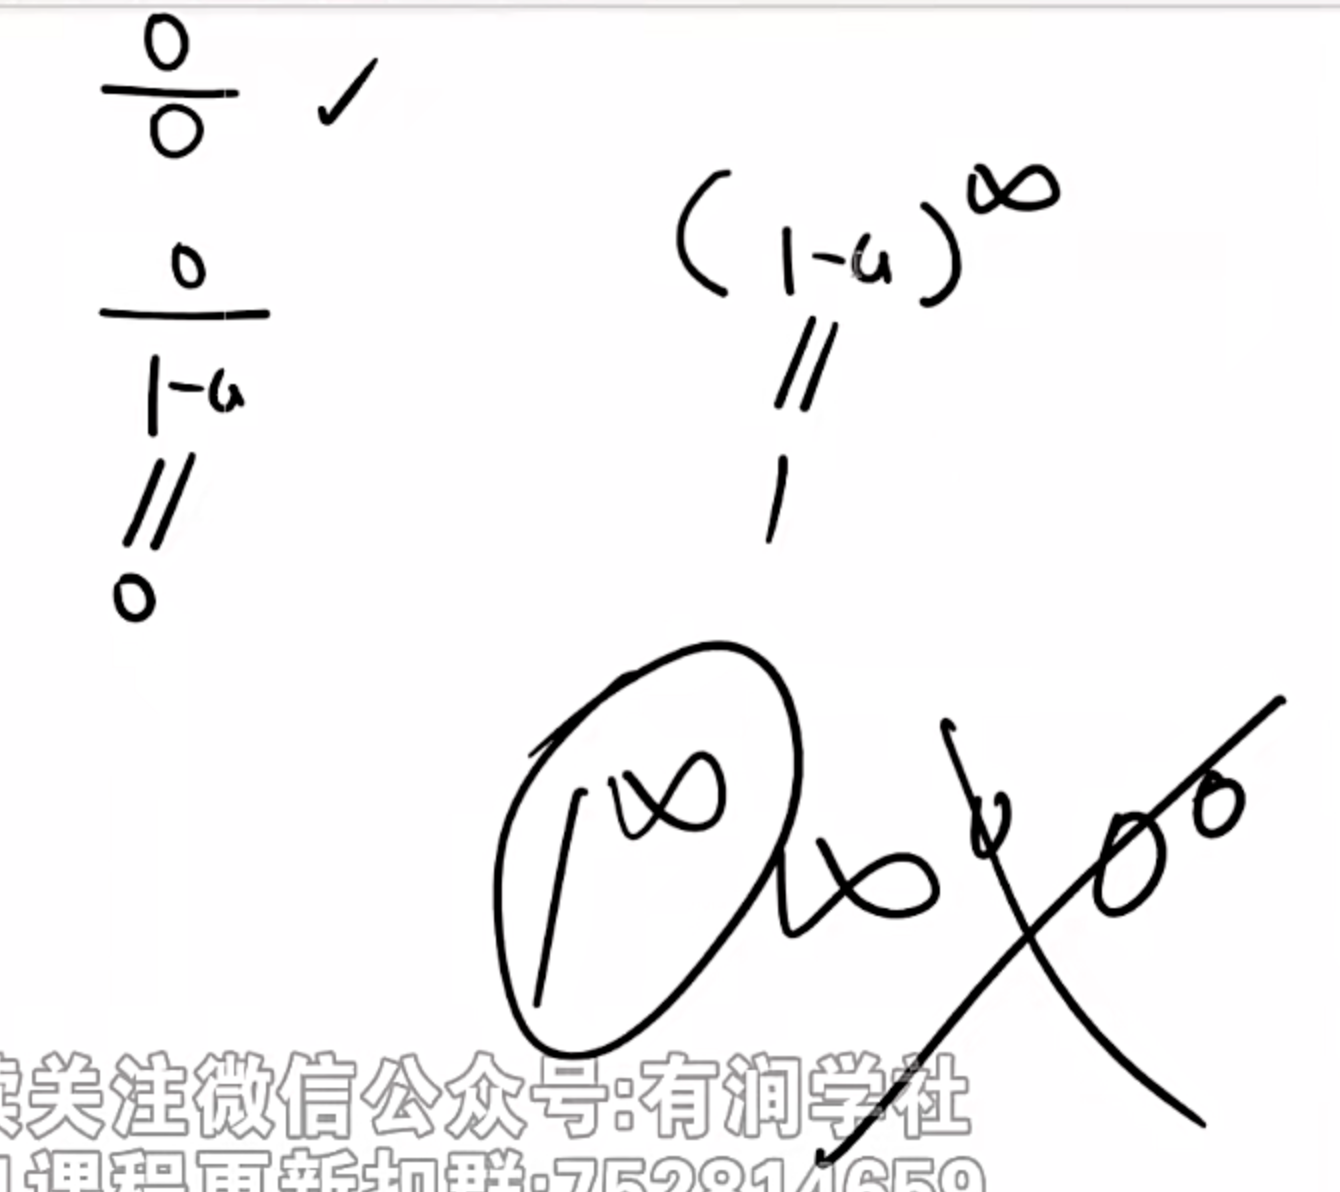 0
0 ✓
0
1-a
=
0
(1-a)^∞
=
1
1^∞ ∞^0 0^0
关注微信公众号:有润学社
课程更新扣群:752814659